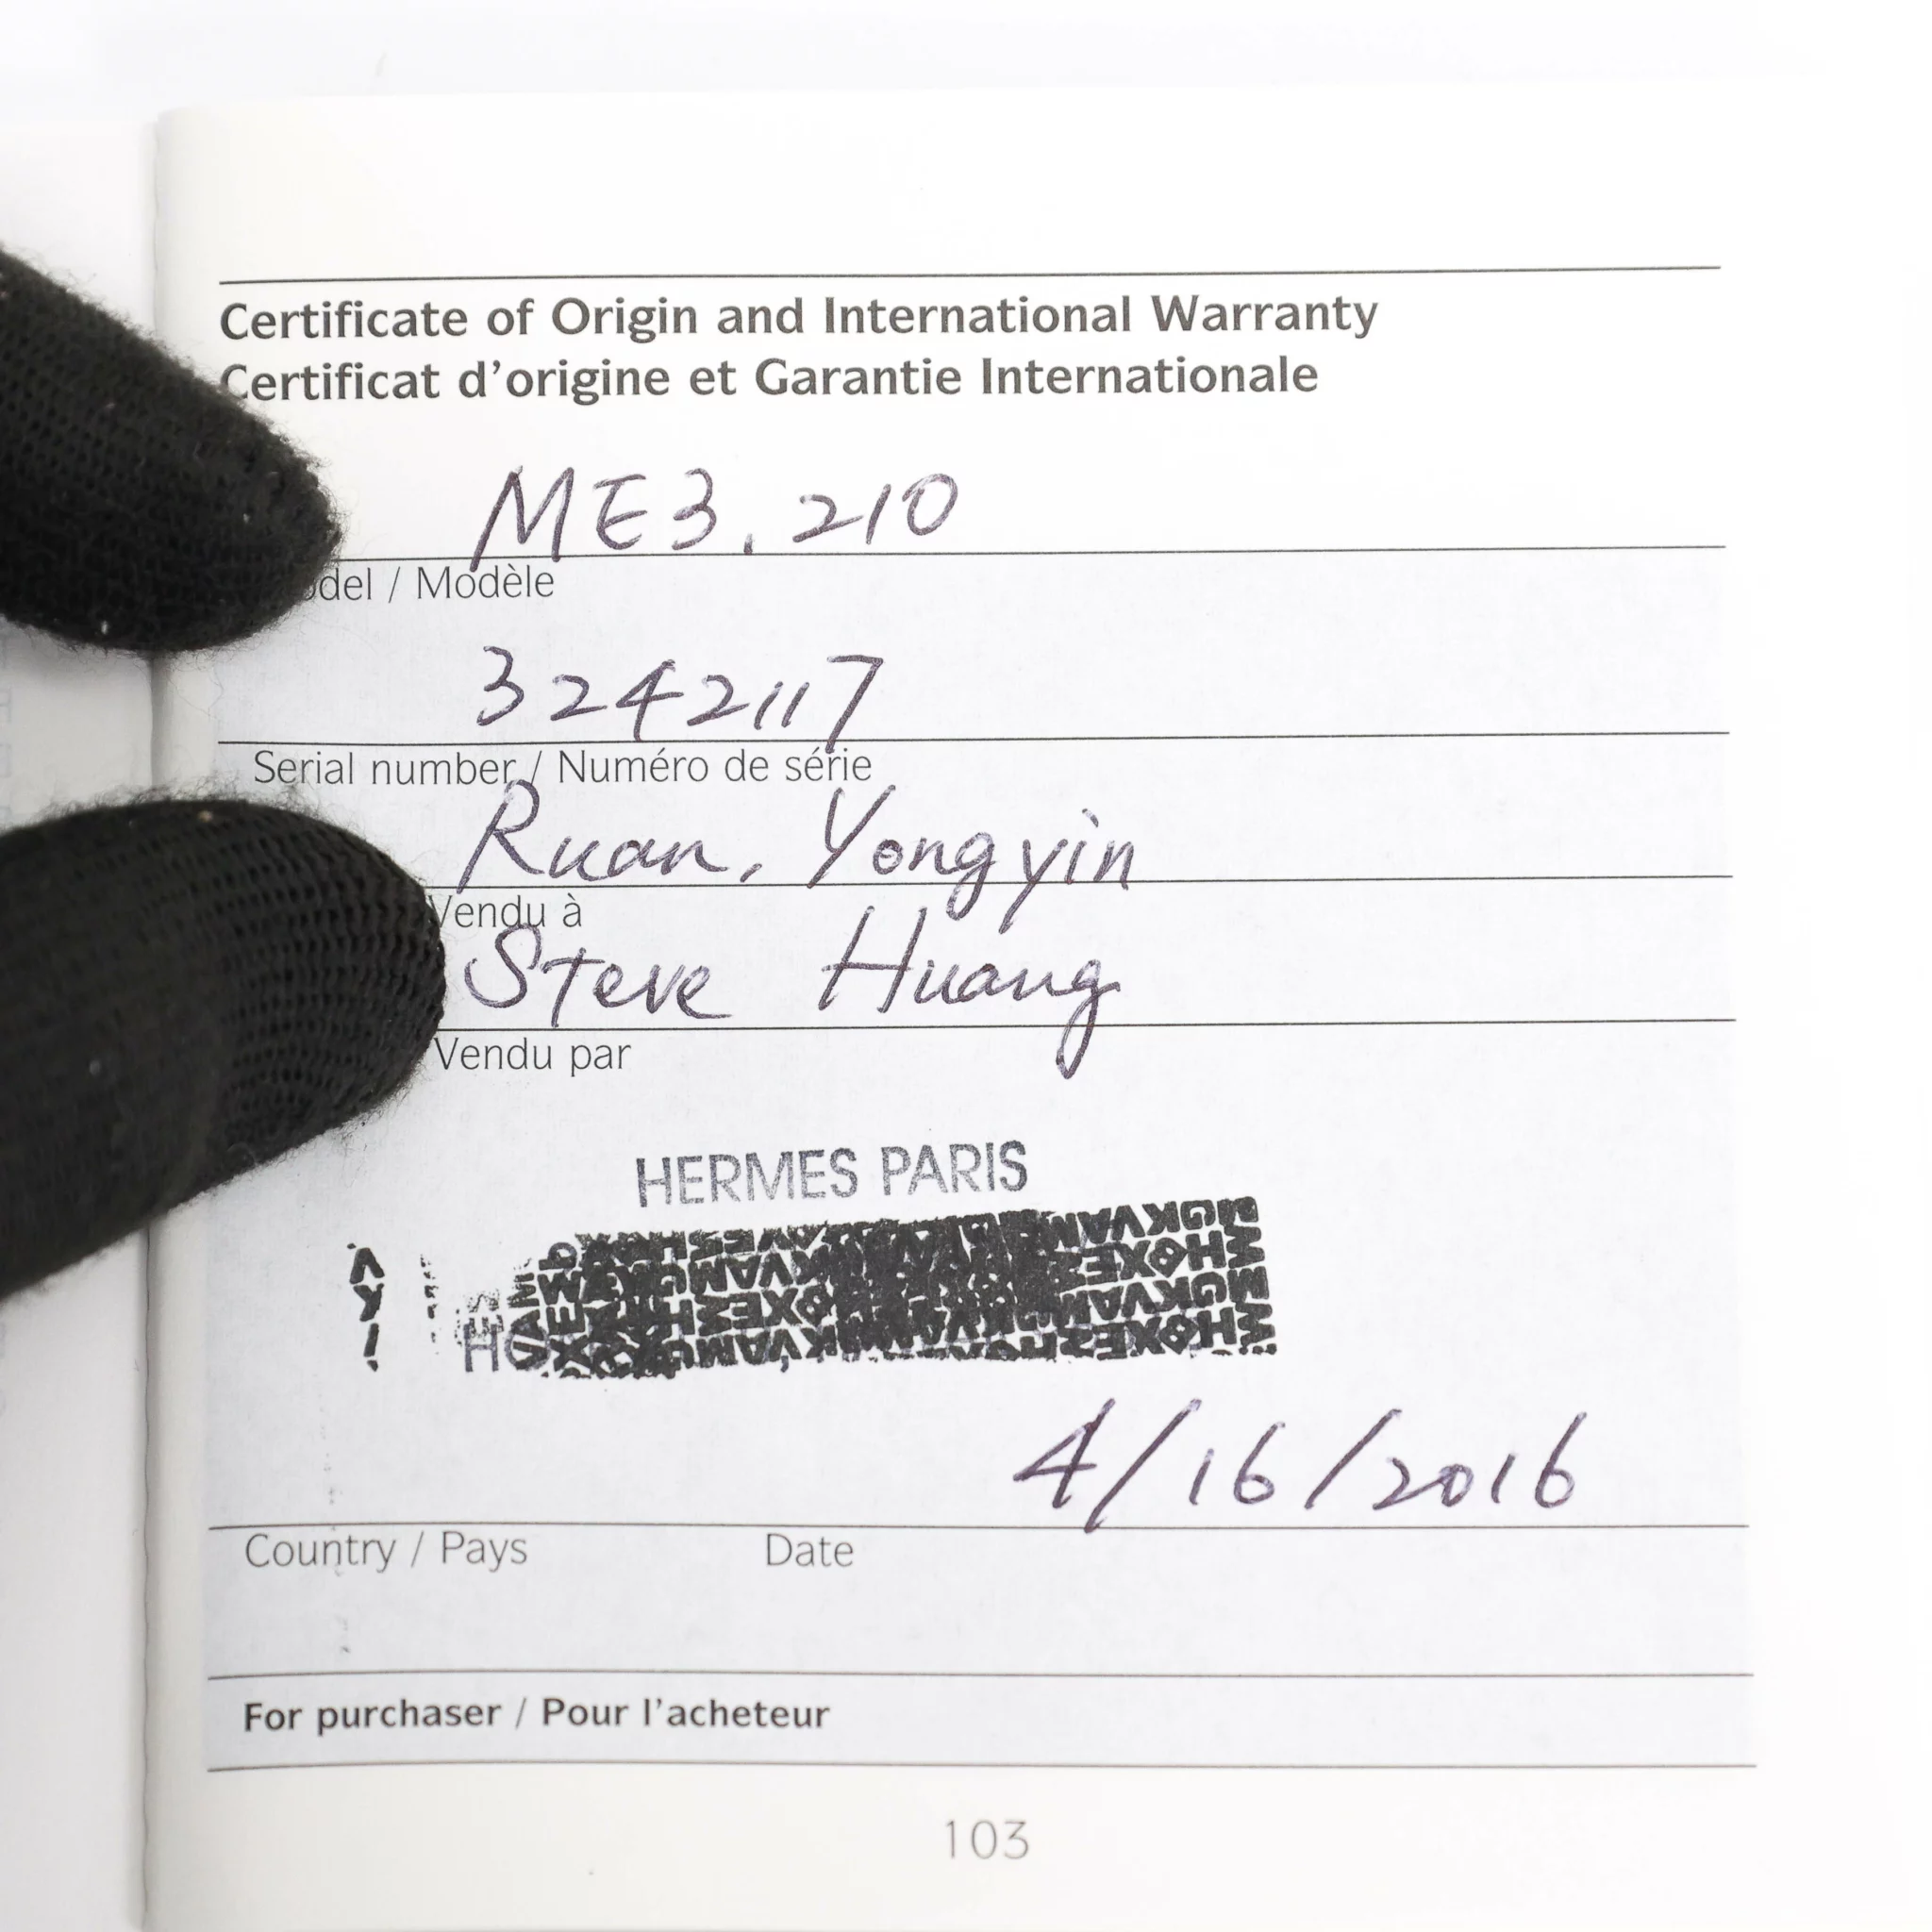 Certificate of Origin and International Warranty
Certificat d'origine et Garantie Internationale
ME3.210
del / Modèle
3242117
Serial number / Numéro de série
Ruan, Yongyin
Vendu à
Steve Huang
Vendu par
HERMES PARIS
4/16/2016
Country / Pays Date
For purchaser / Pour l'acheteur
103